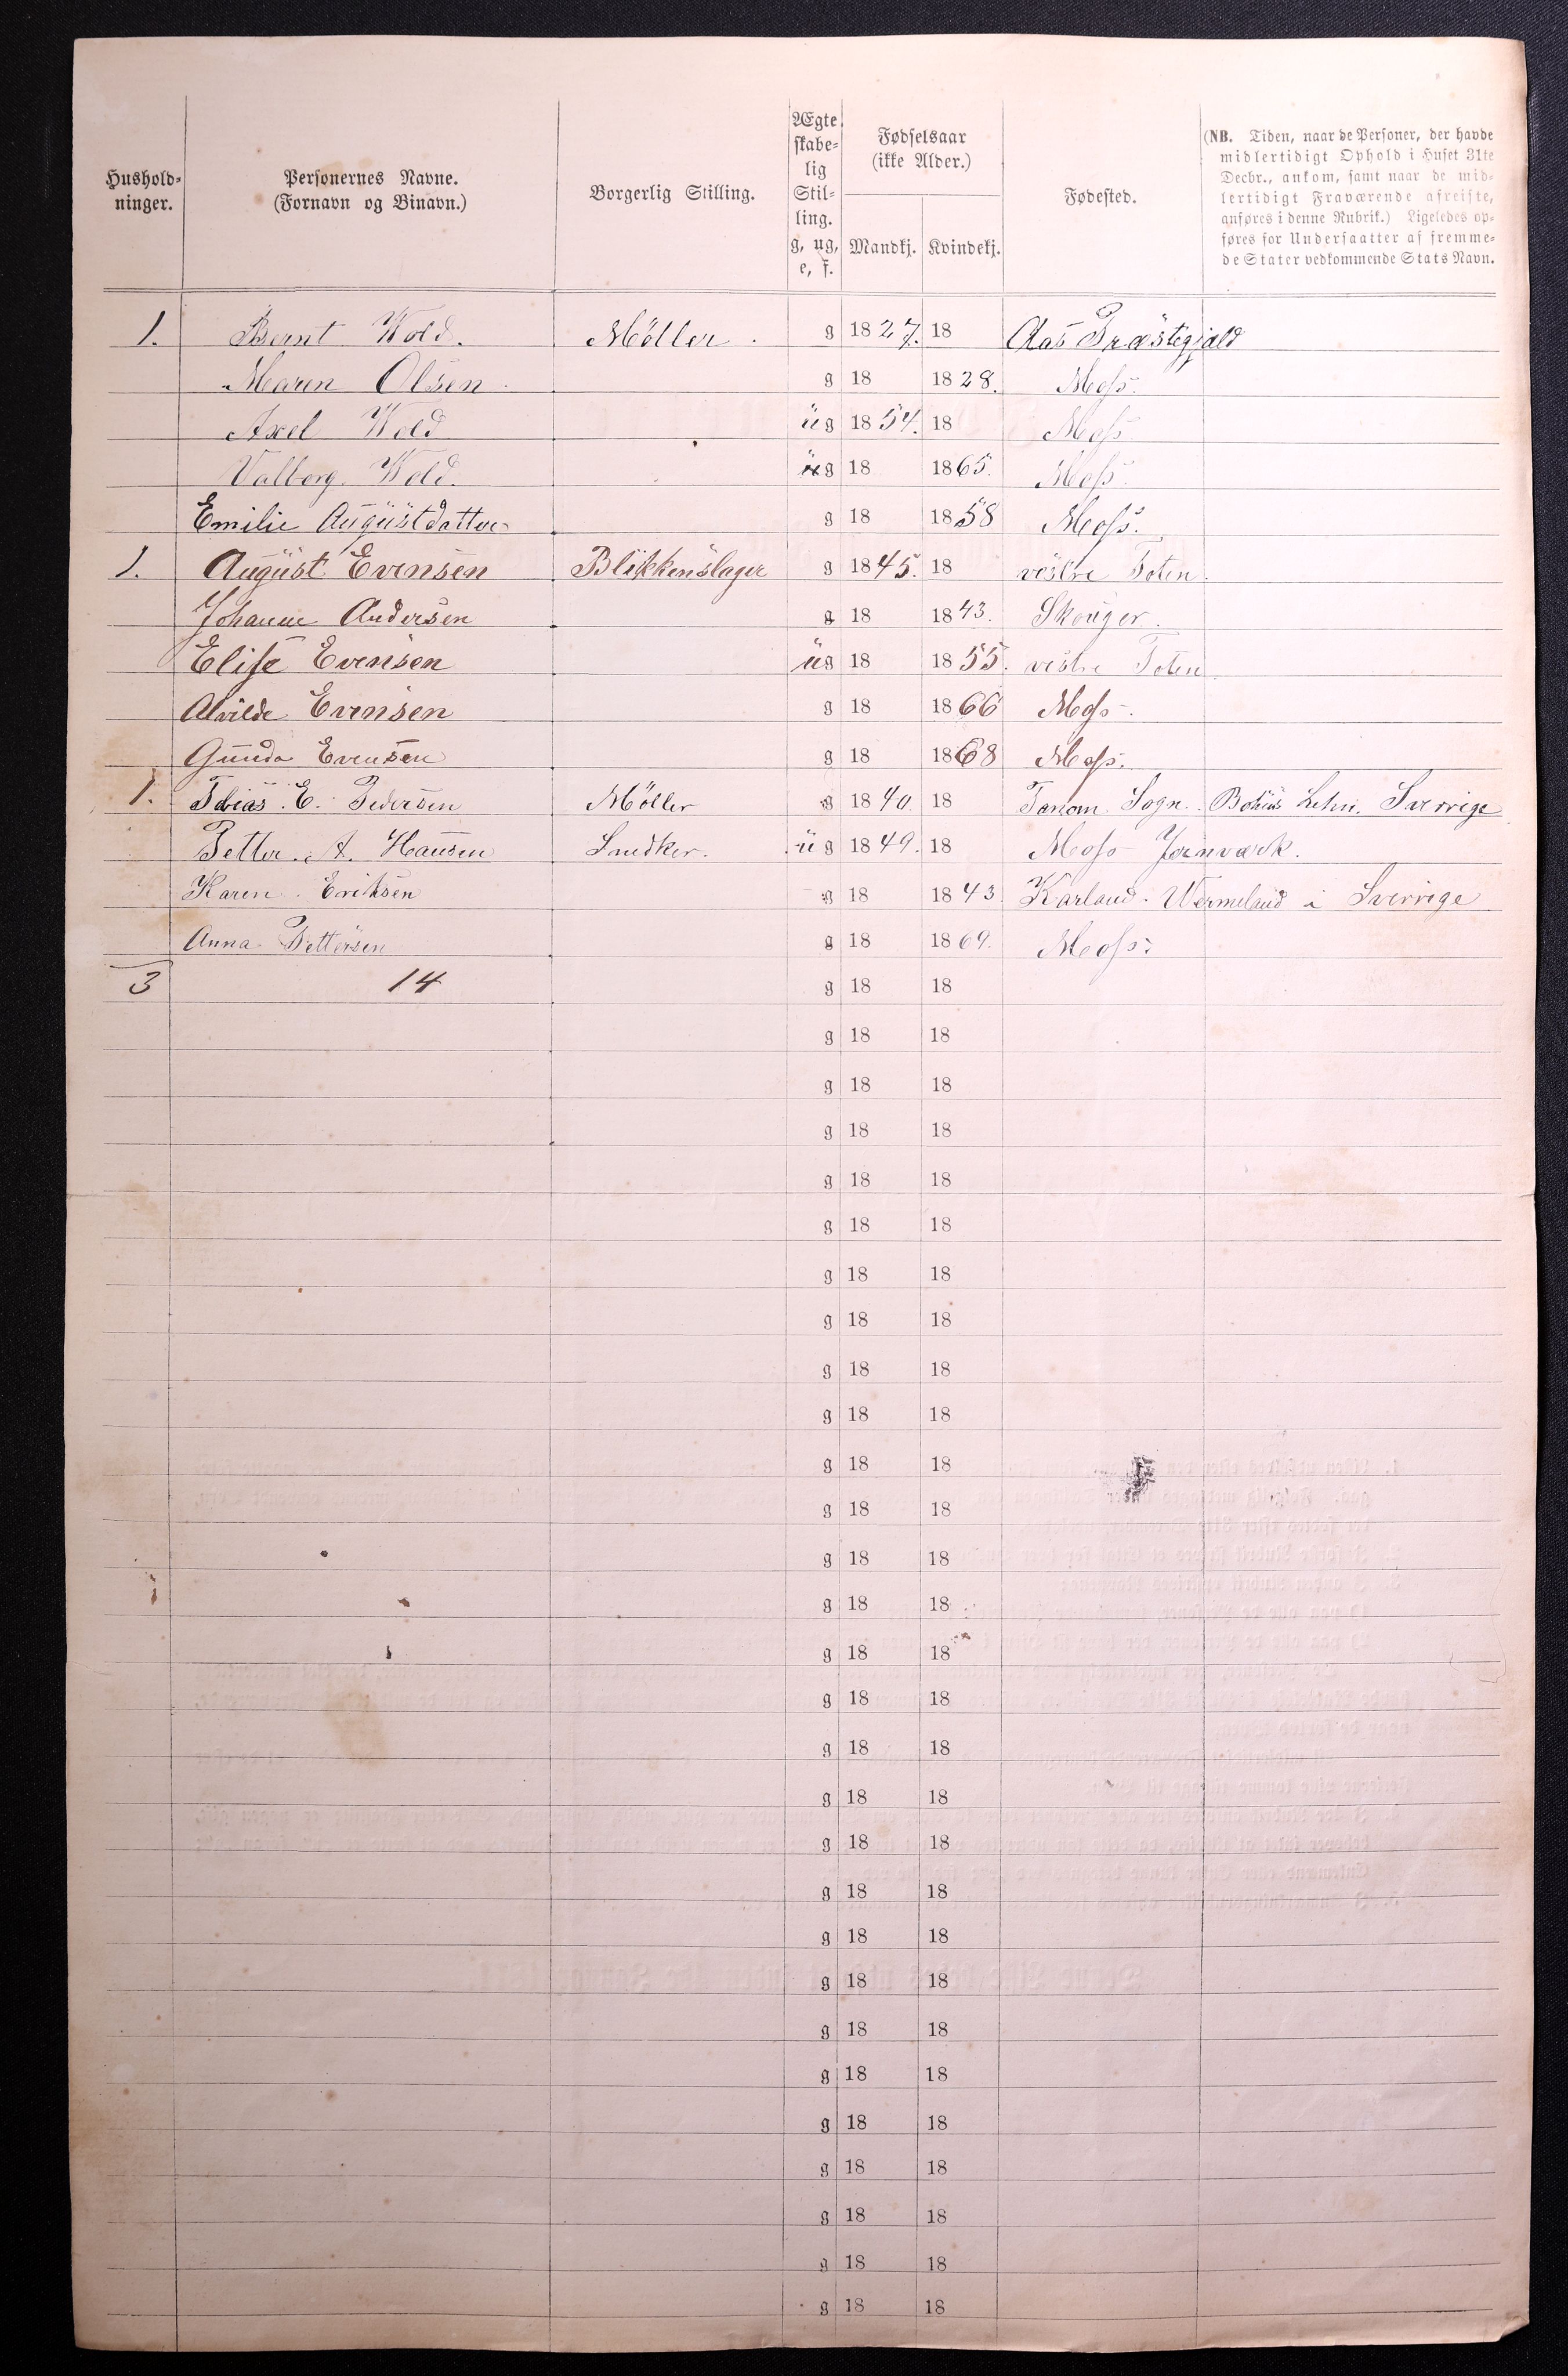 Hushold-
ninger.
Personernes Navne.
(Fornavn og Binavn.)
Borgerlig Stilling.
Ægte
skabe-
lig
Stil-
ling.
g, ug,
e, f.
Fødselsaar
(ikke Alder.)
Mandkj. Kvindekj.
Fødested.
(NB. Tiden, naar de Personer, der havde
midlertidigt Ophold i Huset 31te
Decbr., ankom, samt naar de mid-
lertidigt Fraværende afreiste,
anføres i denne Rubrik.) Ligeledes op-
føres for Undersaatter af fremme-
de Stater vedkommende Stats Navn.
1. Bernt Wold. Møller. g 1827. 18 Aas Præstegjæld
Maren Olsen. g 18 1828. Moss.
Axel Wold ug 1854. 18 Moss
Valborg Wold. ug 18 1865. Moss.
Emilie Augustdatter g 18 1858 Moss.
1. August Evensen Blikkenslager g 1845. 18 vestre Toten.
Johanne Andersen g 18 1843. Skouger.
Elise Evensen ug 18 1855. vestre Toten
Alvilde Evensen g 18 1866 Moss.
Gunda Evensen g 18 1868 Moss.
1. Tobias E. Pedersen Møller g 1840. 18 Tanom Sogn. Bohus Lehn. Sverrige
Petter A. Hansen ug 1849. 18 Moss Jernværk.
Karen Eriksen g 18 1843 Karland. Wermeland i Sverrige
Anna Pettersen g 18 1869. Moss.
3 14 g 18 18
g 18 18
g 18 18
g 18 18
g 18 18
g 18 18
g 18 18
g 18 18
g 18 18
g 18 18
g 18 18
g 18 18
g 18 18
g 18 18
g 18 18
g 18 18
g 18 18
g 18 18
g 18 18
g 18 18
g 18 18
g 18 18
g 18 18
g 18 18
g 18 18
g 18 18
g 18 18
g 18 18
g 18 18